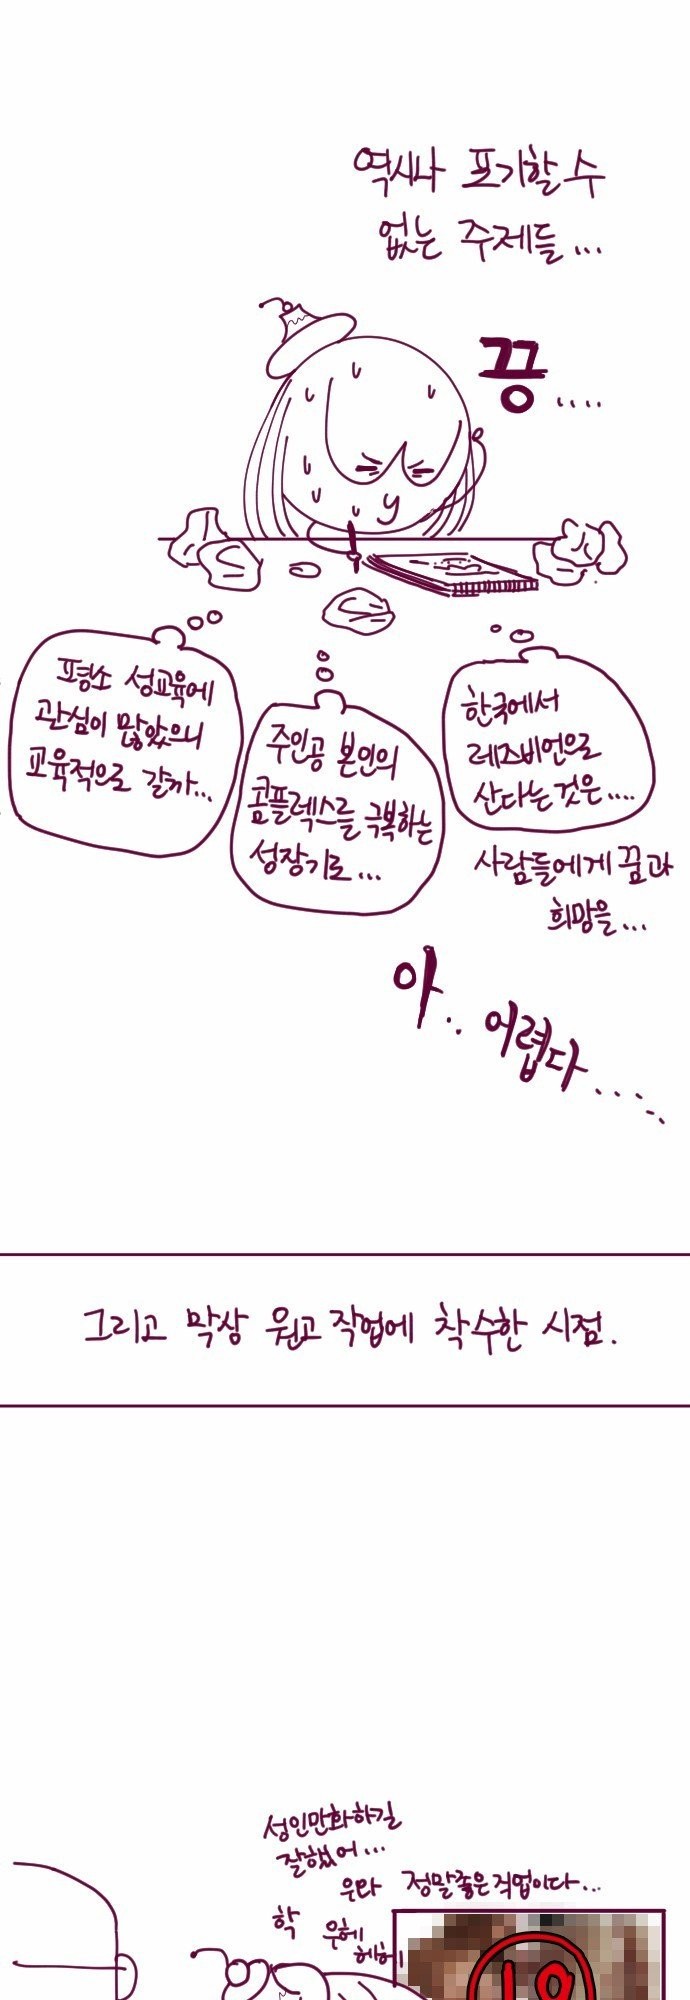 역시나 포기할 수
없는 주제들...
끙....
평소 성교육에
관심이 많았으니
교육적으로 갈까...
주인공 본인의
콤플렉스를 극복하는
성장기로...
한국에서
레즈비언으로
산다는 것은....
사람들에게 꿈과
희망을...
아.. 어렵다.....
그리고 막상 원고 작업에 착수한 시점.
성인만화하길
잘했어...
우와 정말좋은직업이다...
학 우헤
헤헤
19